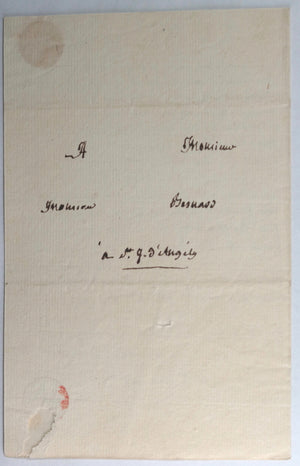 A Monsieur
Monsieur Besnard
à St. J. d'Angely